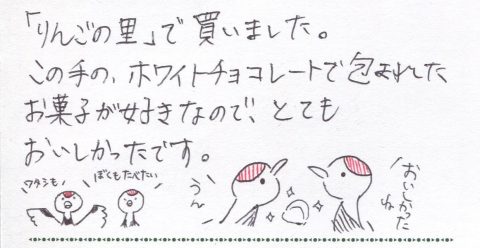 「りんごの里」で買いました。
この手の、ホワイトチョコレートで包まれした
お菓子が好きなので、とても
おいしかったです。
ワタシも
ぼくもたべたい
うん
おいしかった
ね